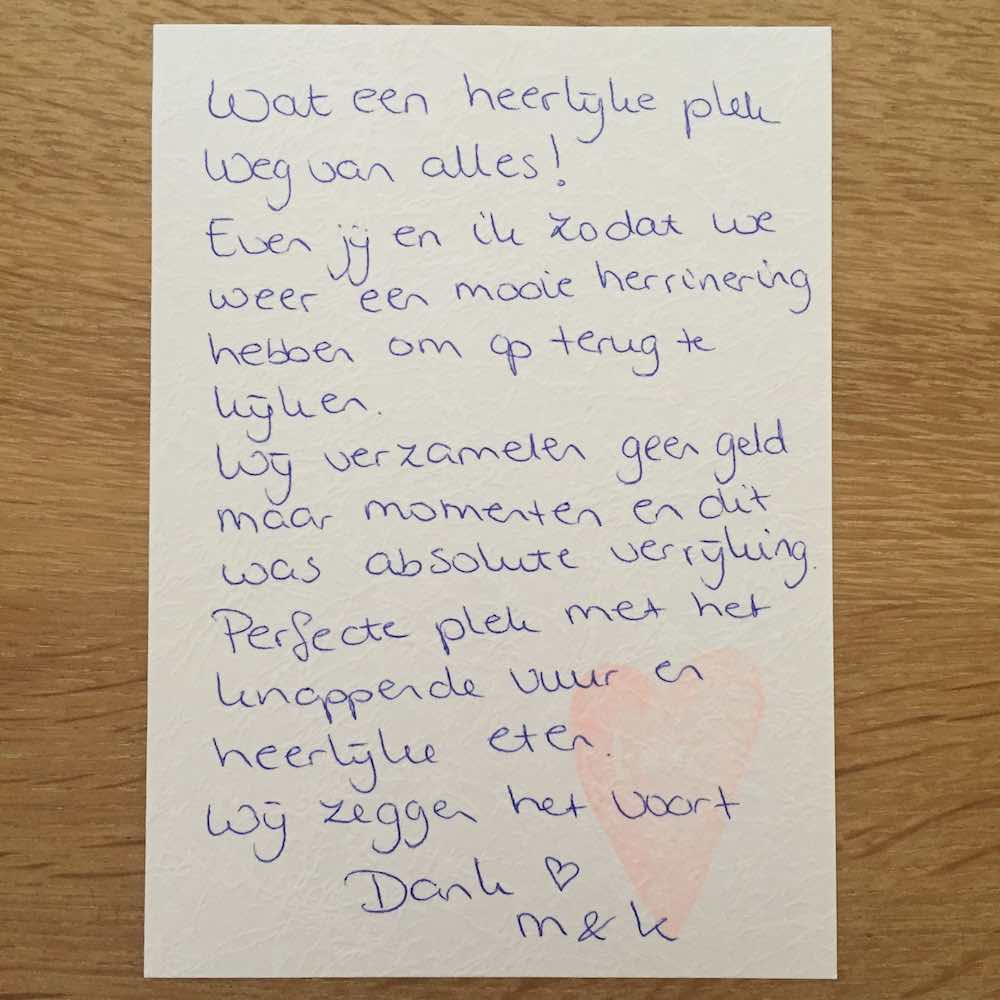 Wat een heerlijke plek
weg van alles!
Even jij en ik zodat we
weer een mooie herrinering
hebben om op terug te
kijken.
Wij verzamelen geen geld
maar momenten en dit
was absolute verrijking.
Perfecte plek met het
knapperde vuur en
heerlijke eten.
Wij zeggen het voort
Dank ♡
m & k